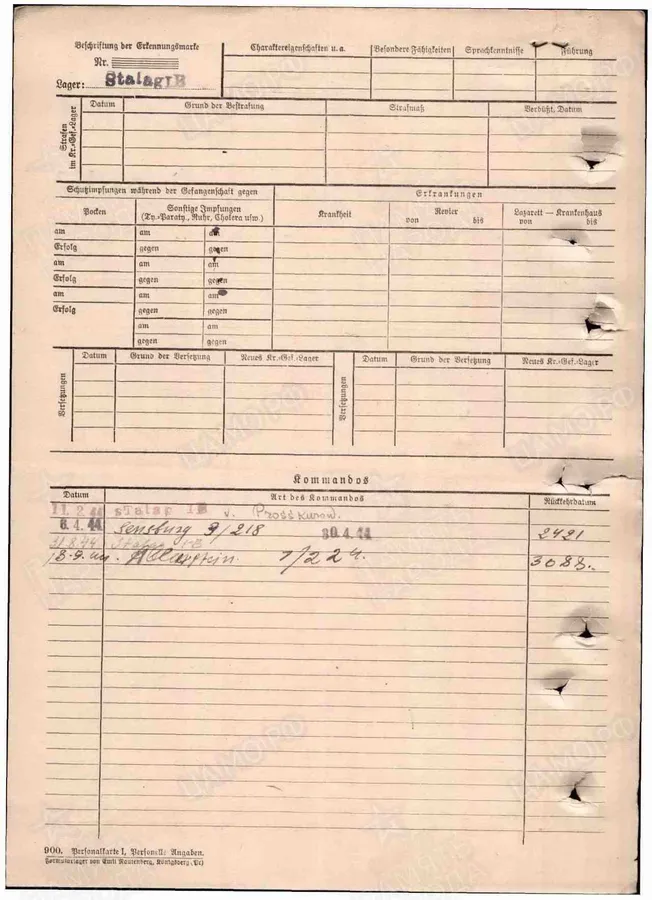 Beschriftung der Erkennungsmarke
Nr.
Lager: Stalag IB
Charaktereigenschaften u. a.
Besondere Fähigkeiten
Sprachkenntnisse
Führung
Strafen im Kr.-Gef.-Lager
Datum
Grund der Bestrafung
Strafmaß
Verbüßt, Datum
Schutzimpfungen während der Gefangenschaft gegen
Erkrankungen
Pocken
Sonstige Impfungen
(Ty.-Paraty., Ruhr, Cholera usw.)
Krankheit
Revier
von bis
Lazarett — Krankenhaus
von bis
am am am
Erfolg gegen gegen
am am am
Erfolg gegen gegen
am am am
Erfolg gegen gegen
am am
gegen gegen
Versetzungen
Datum
Grund der Versetzung
Neues Kr.-Gef.-Lager
Versetzungen
Datum
Grund der Versetzung
Neues Kr.-Gef.-Lager
Kommandos
Datum
Art des Kommandos
Rückkehrdatum
11.2.44 Stalag IB v. Prosskurow.
6.4.44 Sensburg 9/218 30.4.44 2421
31.8.44 Stalag IB
13.9.44. Allenstein 1/224. 3088.
900. Personalkarte I, Personelle Angaben.
Formularlager von Emil Rautenberg, Königsberg (Pr)
ЦАМО РФ